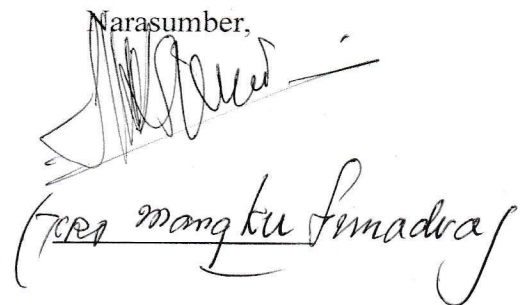 Narasumber,
(Jero Mangku Sumadra)